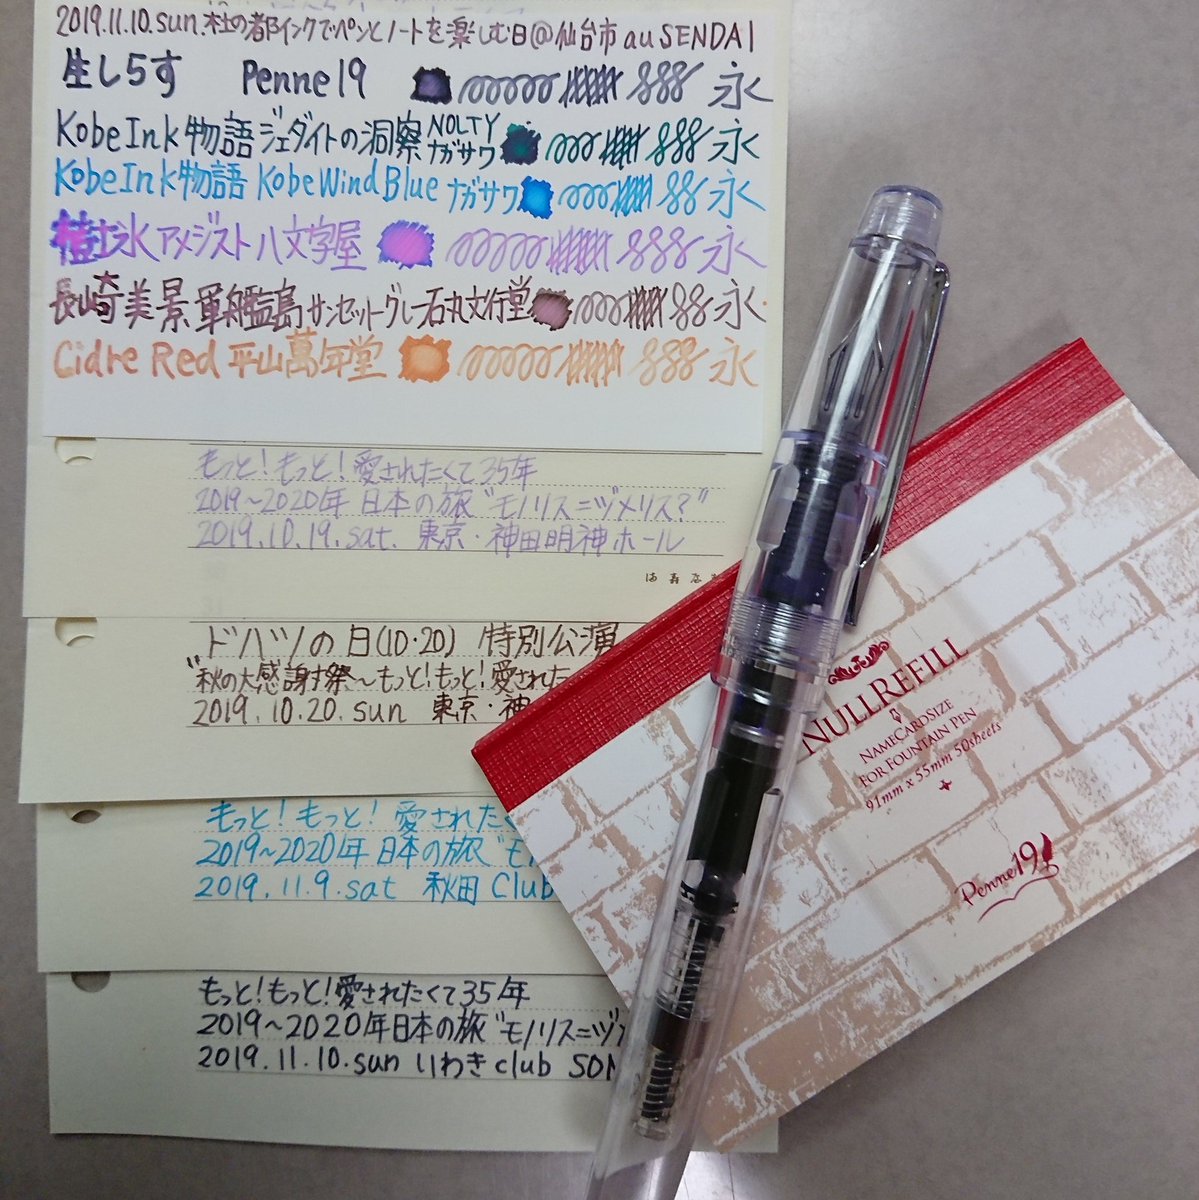 2019.11.10.sun.杜の都インクでペンとノートを楽しむ日@仙台市 au SENDAI
生しらす Penne19 永く
KobeInk物語 ジェダイトの洞察 NOLTY ナガサワ 永く
KobeInk物語 KobeWindBlue ナガサワ 永く
樹氷アメジスト 八文字屋 永く
長崎美景 軍艦島サンセットグレー 石丸文行堂 永く
Cidre Red 平山萬年堂 永く
もっと!もっと!愛されたくて35年
2019~2020年 日本の旅"モノノリスニヅメリス?"
2019.10.19.sat. 東京・神田明神ホール
ドハツの日(10・20) 特別公演
"秋の大感謝す祭~もっと!もっと!愛された
2019.10.20.sun 東京・神
もっと!もっと! 愛されたく
2019~2020年 日本の旅"モ
2019.11.9.sat 秋田 Club
もっと!もっと!愛されたくて35年
2019~2020年日本の旅"モノノリスニヅ
2019.11.10.sun いわき club SON
NULLREFILL
NAMECARDSIZE
FOR FOUNTAIN PEN
91mm x 55mm 50sheets
Penne19